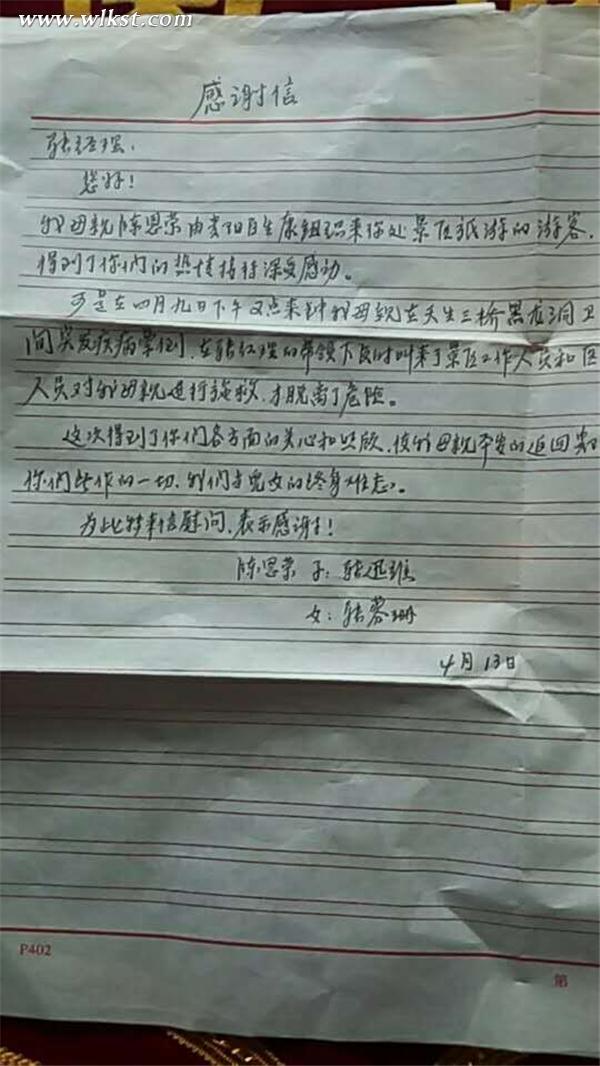 www.wlkst.com
感谢信
张经理.
您好!
我母亲陈思荣由贵阳百生康组织来你处景区旅游的游客,
得到了你们的热情接待深受感动。
可是在四月九日下午又点来钟我母亲在天生三桥黑龙洞卫
间突发疾病晕倒,在张经理的带领下及时叫来了景区工作人员和医
人员对我母亲进行施救,才脱离了危险。
这次得到了你们各方面的关心和照顾,使我母亲平安的返回贵
你们所作的一切,我们当儿女的终身难忘。
为此特来信慰问,表示感谢!
陈思荣 子:张迅
女:张蓉珊
4月13日
P402
第